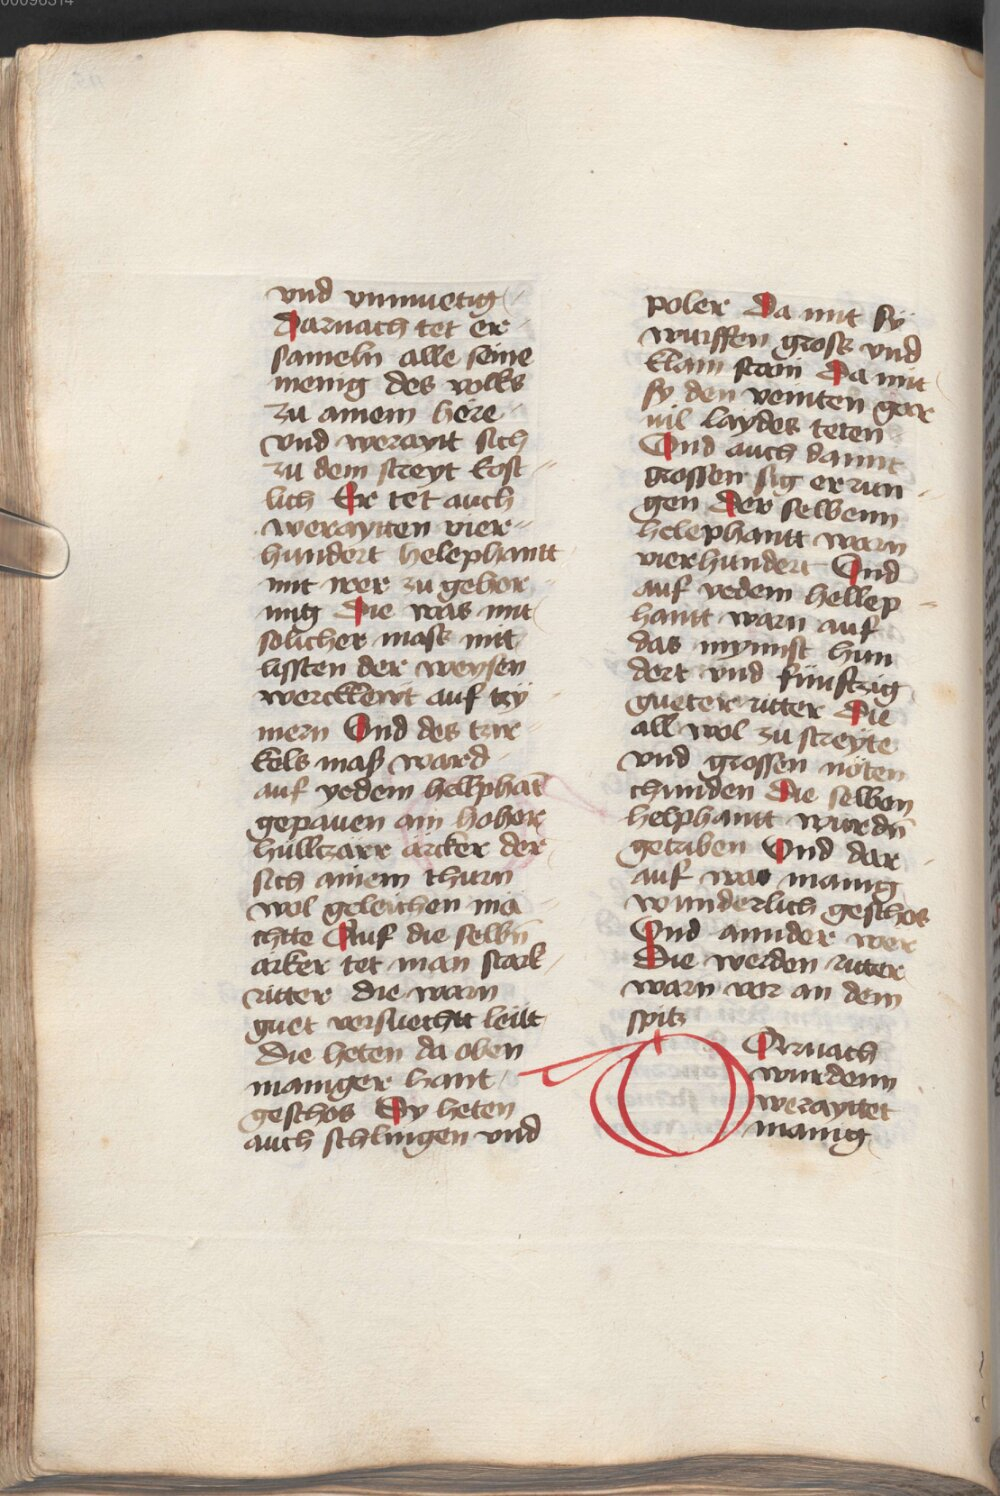 vnd vnmuetig
Darnach tet er
sameln alle seine
menig des volks
zu ainem here
vnd werayt sich
zu dem streyt kost
lich Er tet auch
werayten vier
hundert helephantt
mit wer zu gehor
nug Die was mit
solicher mass mit
lissten der weysen
werckleut auf tzy
mern Vnd des tzir
kels maß ward
auf yedem hellphāt
gepauen ain hoher
hülltzārr ārcker der
sich ainem thurn
wol geleichen mā
chtte Auf die selbn̄
arker tet man stark
ritter die warn
guet versuechtt leüt
Die heten da oben
maniger hant
geschos Sy heten
auch schlingen vnd
poler Da mit sy
wurffen gross vnd
klain stain Da mit
sy den veinten gar
vil laydes teten
Vnd auch damit
grossen sig errun
gen Der selbenn
helephantt warn
vierhundert Vnd
auf yedem hellep
hantt warn auf
das mynnst hun
dert vnd fünftzig
gueter ritter Die
all wol zu streyte
vnd grossen nöten
chunden Die selben
helphantt wurdn̄
getriben Vnd dar
auf was manig
wunderlich geschos
Vnd annder wer
Die werden ritter
warn vor an dem
spitz
DArnach
wurdenn
werayttet
manig